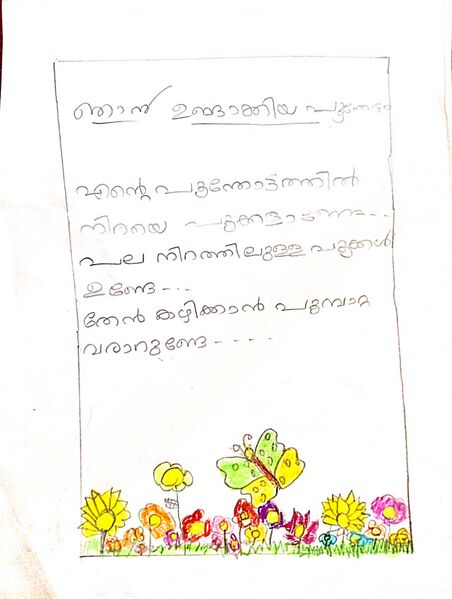 ഞാൻ ഉണ്ടാക്കിയ പൂന്തോട്ടം
എന്റെ പൂന്തോട്ടത്തിൽ
നിറയെ പൂക്കളാണേ---
പല നിറത്തിലുള്ള പൂക്കൾ
ഉണ്ടേ---
തേൻ കുടിക്കാൻ പൂമ്പാറ്റ
വരാറുണ്ടേ----